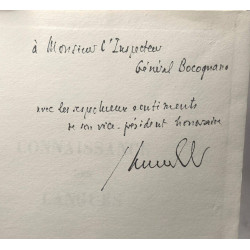 à Monsieur l'Inspecteur
Général Bocognano
avec les respectueux sentiments
de son vice-président honoraire
CONNAISSANCE
LANGUES